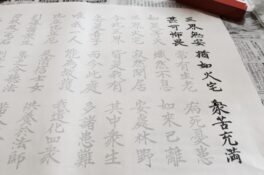 三界無安 猶如火宅 衆苦充満
甚可怖畏 常有生老 病死憂患
如是等火 熾然不息 如来已離
三界火宅 寂然閑居 安處林野
今此三界 皆是我有 其中衆生
悉是吾子 而今此處 多諸患難
唯我一人 能為救護 我遣化四衆
清信士女 供養於法師